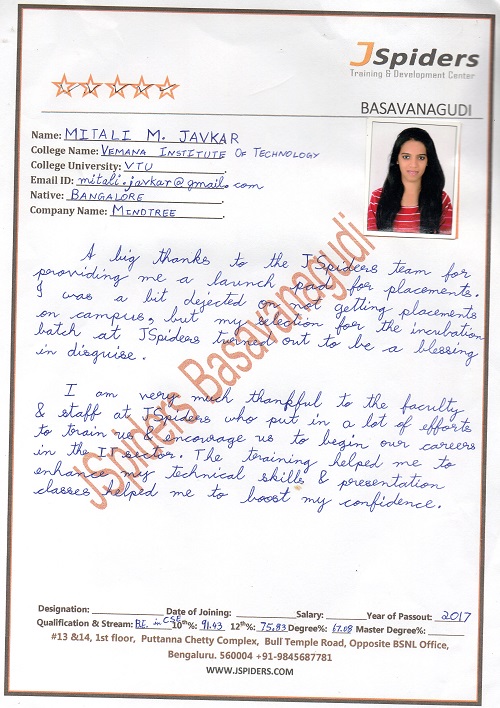 JSpiders
Training & Development Center
BASAVANAGUDI
Name: MITALI M. JAVKAR
College Name: VEMANA INSTITUTE OF TECHNOLOGY
College University: VTU
Email ID: mitali.javkar@gmail.com
Native: BANGALORE
Company Name: MINDTREE
A big thanks to the JSpiders team for
porviding me a launch pad for placements.
I was a bit dejected on not getting placements
on campus, but my selection for the incubation
batch at JSpiders turned out to be a blessing
in disguise.
I am very much thankful to the faculty
& staff at JSpiders who put in a lot of efforts
to train us & encourage us to begin our careers
in the IT sector. The training helped me to
enhance my technical skills & presentation
classes helped me to boost my confidence.
JSpiders Basavanagudi
Designation: Date of Joining: Salary: Year of Passout: 2017
Qualification & Stream: BE. in CSE 10th%: 91.43 12th%: 75.83 Degree%: 67.08 Master Degree%:
#13 &14, 1st floor, Puttanna Chetty Complex, Bull Temple Road, Opposite BSNL Office,
Bengaluru. 560004 +91-9845687781
WWW.JSPIDERS.COM